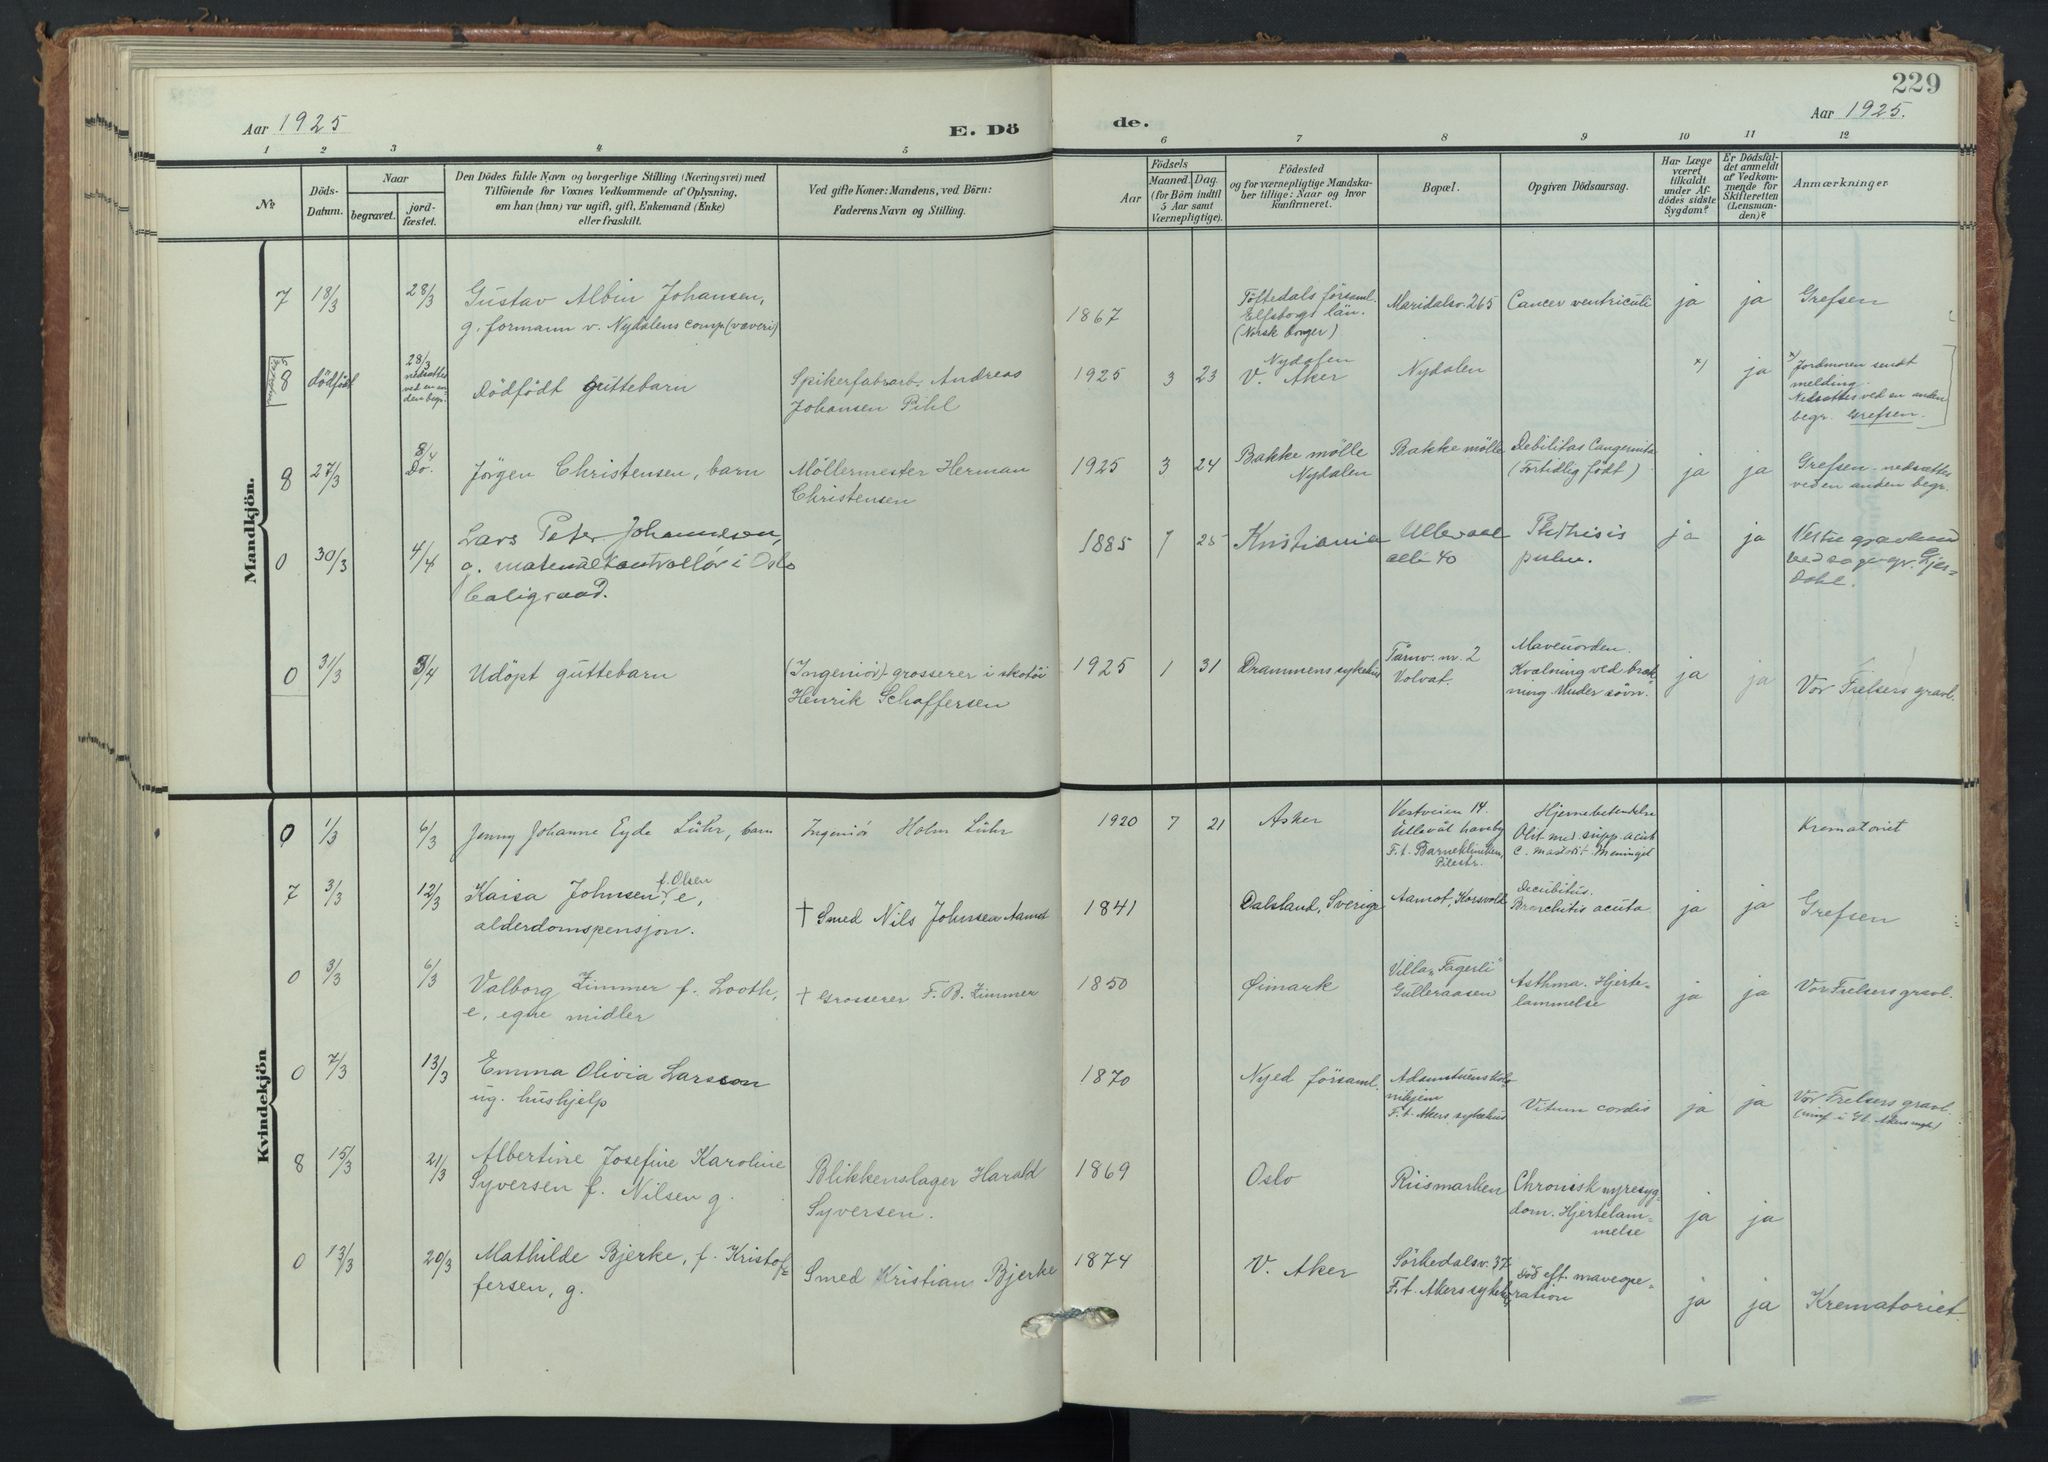 229
Aar 1925
E. Dö
de.
Aar 1925.
1 2 3 4 5 6 7 8 9 10 11 12
No.
Döds-
Datum.
Naar
begravet.
jord-
fæstet.
Den Dödes fulde Navn og borgerlige Stilling (Næringsvei) med
Tilföiende for Voxnes Vedkommende af Oplysning,
om han (hun) var ugift, gift, Enkemand (Enke)
eller fraskilt.
Ved gifte Koner: Mandens, ved Börn:
Faderens Navn og Stilling.
Födsels
Aar
Maaned. Dag.
(for Börn indtil
5 Aar samt
Værnepligtige).
Födested
og for værnepligtige Mandska-
ber tillige: Naar og hvor
konfirmeret.
Bopæl.
Opgiven Dödsaarsag.
Har Læge
været
tilkaldt
under Af-
dödes sidste
Sygdom?
Er Dödsfal-
det anmeldt
af Vedkom-
mende for
Skifteretten
(Lensman-
den)?
Anmærkninger
Mandkjön.
7 18/3 28/3 Gustav Albin Johansen,
g. formann v. Nydalens comp (væveri)
1867
Töftedals församl.
Elfsborgs län.
(Norsk borger)
Maridalsv. 265
Cancer ventriculi
ja ja Grefsen
8 dödfödt
28/3
nedsættes
ved en an-
den begr.
Dödfödt guttebarn
Spikerfabrarb. Andreas
Johansen Pihl
1925 3 23
Nydalen
V. Aker
Nydalen
x) ja
x) Jordmoren sendt
melding.
Nedsættes ved en anden
begr. Grefsen.
8 27/3 8/4
Do.
Jörgen Christensen, barn
Möllermester Herman
Christensen
1925 3 24
Bakke mölle
Nydalen
Bakke mölle
Debilitas Congenita
(Fortidlig födt)
ja ja
Grefsen - nedsættes
ved en anden begr.
0 30/3 4/4
Lars Peter Johannesen,
g. materialkontrollör i Oslo
1885 7 25
Kristiania
Ulleval
alle 40
Phthisis
pulm.
ja ja
Vestre gravlund
0 31/3 3/4
Udöpt guttebarn
(Ingeniör) grosserer i skotöi
Henrik Schaffersen
1925 1 31
Drammens sykehus
Tårnv. nr. 2
Volvat.
Maveuorden.
Kvælning ved bræk-
ning under sövn.
ja ja
Vor Frelsers gravl.
Kvindekjön
0 1/3 6/3
Jenny Johanne Eyde Lühr, barn
Ingeniör Holm Lühr
1920 7 21
Asker
Vestveien 14.
Ullevål haveby
F. t. Barneklinikken,
Pilestr.
Hjernebetendelse
Otit med. supp. acut
c. mastoit. Meningit
Krematoriet
7 3/3 12/3
Kaisa Johnsen f. Olsen, e,
alderdomspensjon.
† Smed Nils Johnsen Aamot
1841
Dalsland, Sverige
Aamot, Korsvold
Decubitus.
Bronchitis acuta
ja ja
Grefsen
0 3/3 6/3
Valborg Zimmer f. Looth,
e, egne midler
† Grosserer F. B. Zimmer
1850
Øimark
Villa "Fagerli"
Gulleraasen
Asthma. Hjerte-
lammelse
ja ja
Vor Frelsers gravl.
0 7/3 13/3
Emma Olivia Larsson
ug. hushjelp
1870
Nyed församl.
F. t. Akers sykehus
Vitium cordis
ja ja
Vor Frelsers gravl.
8 15/3 21/3
Albertine Josefine Karoline
Syversen f. Nilsen g.
Blikkenslager Harald
Syversen.
1869
Oslo
Riismarken
Chronisk nyresyg-
dom. Hjertelam-
melse
ja ja
0 13/3 20/3
Mathilde Bjerke, f. Kristof-
fersen, g.
Smed Kristian Bjerke
1874
V. Aker
Sörkedalsv. 37
F. t. Akers sykehus
Död eft. maveope-
ration
ja ja
Krematoriet.